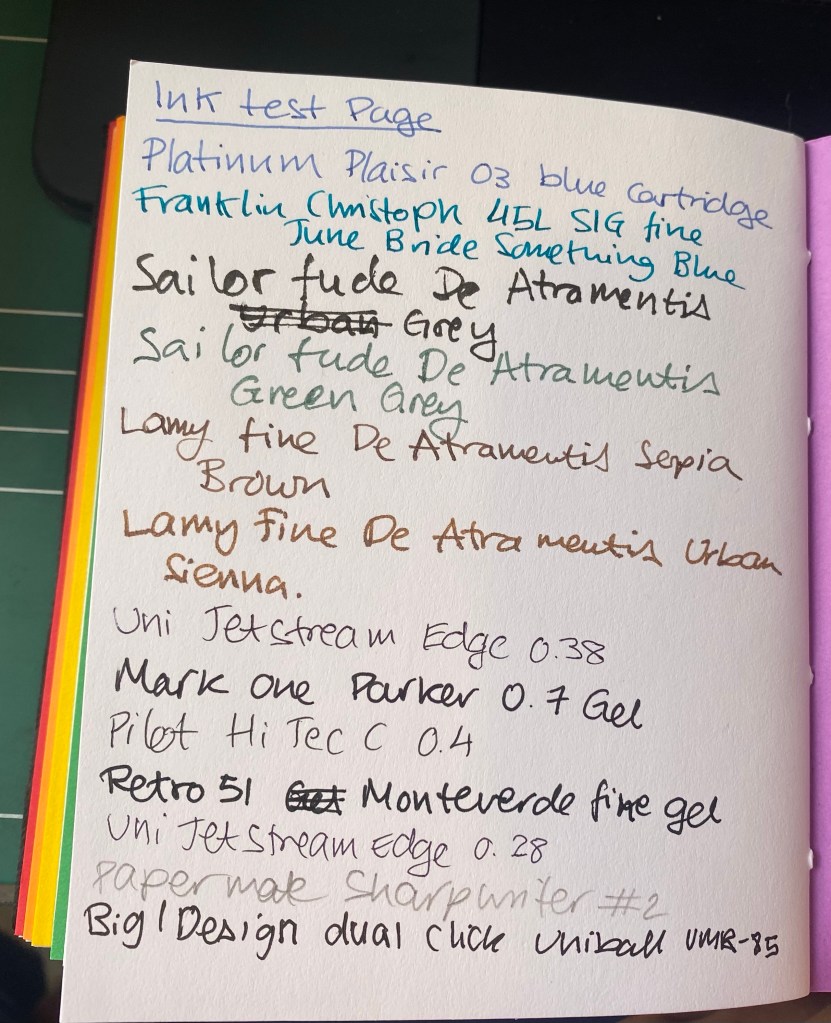 Ink test Page
Platinum Plaisir 03 blue Cartridge
Franklin Christoph 45L SIG fine
June Bride Something Blue
Sailor fude De Atramentis
Urban Grey
Sailor fude De Atramentis
Green Grey
Lamy fine De Atramentis Sepia
Brown
Lamy Fine De Atramentis Urban
Sienna.
Uni Jetstream Edge 0.38
Mark one Parker 0.7 Gel
Pilot Hi Tec C 0.4
Retro 51 Gel Monteverde fine gel
Uni Jetstream Edge 0.28
Papermate Sharpwriter #2
Big I Design dual click Uniball UMR-85